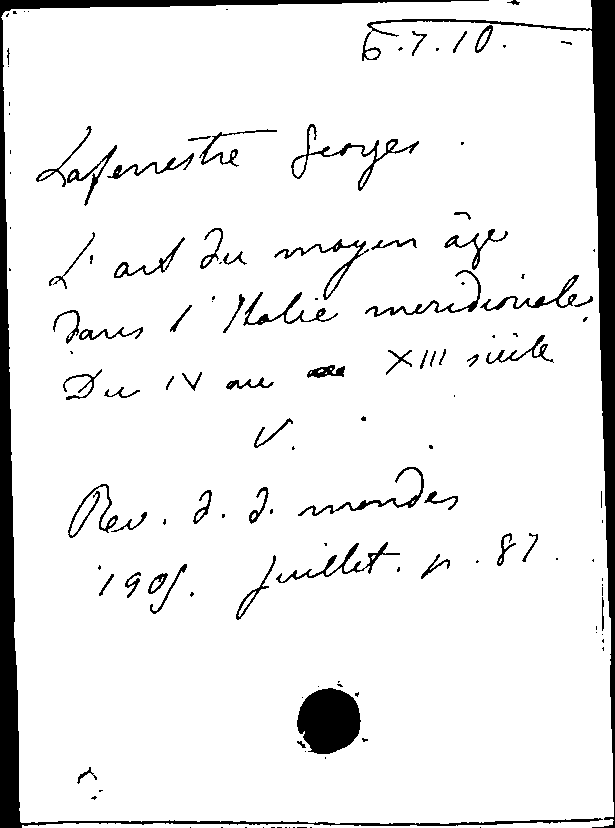 6.7.10.
Lafenestre Georges.
L'art du moyen âge
dans l'Italie meridionale.
Du IV au XIII siècle
V.
Rev. d. d. mondes
1905. Juillet. p. 87.